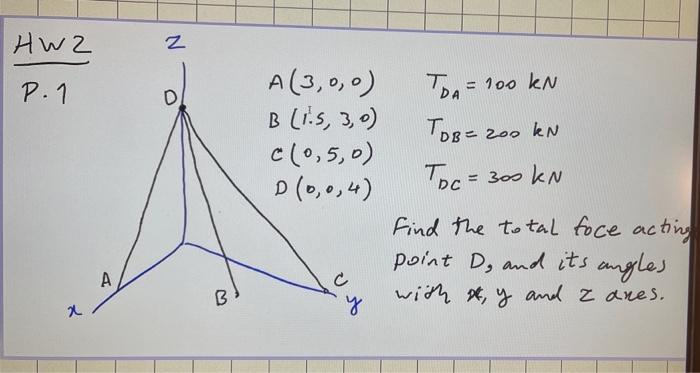 HW2
P.1
z
D
A
B
C
x
y
A(3,0,0)
B(1.5, 3,0)
C(0,5,0)
D(0,0,4)
TDA = 100 kN
TDB = 200 kN
TDC = 300 kN
Find the total foce acting
point D, and its angles
with x, y and z axes.